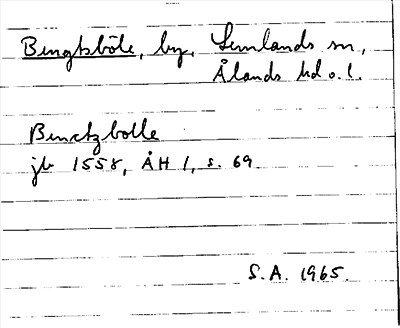 Bengtsböle, by, Lemlands sn,
Ålands hd o. l.
Benctzbolle
jb 1558, ÅH 1, s. 69
S.A. 1965.